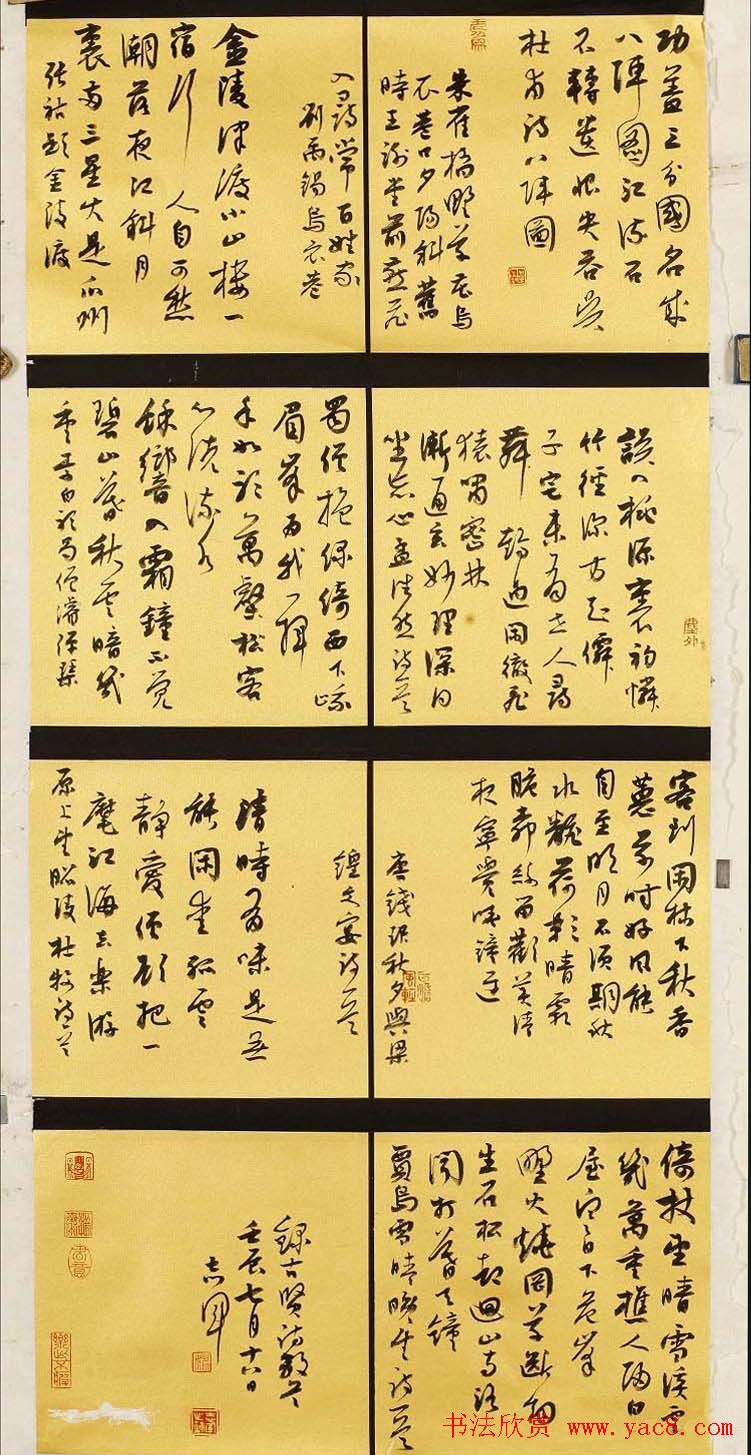 功蓋三分國名成
八陣圖江流石
不轉遺恨失吞吳
杜甫詩八陣圖
朱雀橋野草花烏
衣巷口夕陽斜舊
時王謝堂前燕飛
入尋常百姓家
劉禹錫烏衣巷
金陵津渡小山樓一
宿行人自可愁
潮落夜江斜月
裏兩三星火是瓜州
張祜題金陵渡
誤入桃源裏初憐
竹徑深方知僊
子宅未有世人尋
舞鶴過閑徹飛
猿嘯密林
漸通玄妙理深得
坐忘心孟浩然詩一首
蜀僧抱綠綺西下峨
眉峯為我一揮
手如聽萬壑松客
心洗流水
餘響入霜鐘不覺
碧山暮秋雲暗幾
重李白聽蜀僧濬彈琴
客到閑林下秋香
蕙草時好風能
自至明月不須期秋
水翻荷影晴霜
脆柳絲留歡美清
夜寧覺曉鐘遲
唐錢起秋夕與梁
鍠文宴詩一首
清時有味是無
能閑愛孤雲
靜愛僧欲把一
麾江海去樂遊
原上望昭陵杜牧詩一首
倚杖望晴雪溪雲
幾萬重樵人歸白
屋寒日下危峯
野火燒岡草斷煙
生石松卻迴山寺路
聞打暮天鐘
賈島雪晴晚望詩一首
錄古賢詩數首
壬辰七月十六日
书法欣赏 www.yac8.com